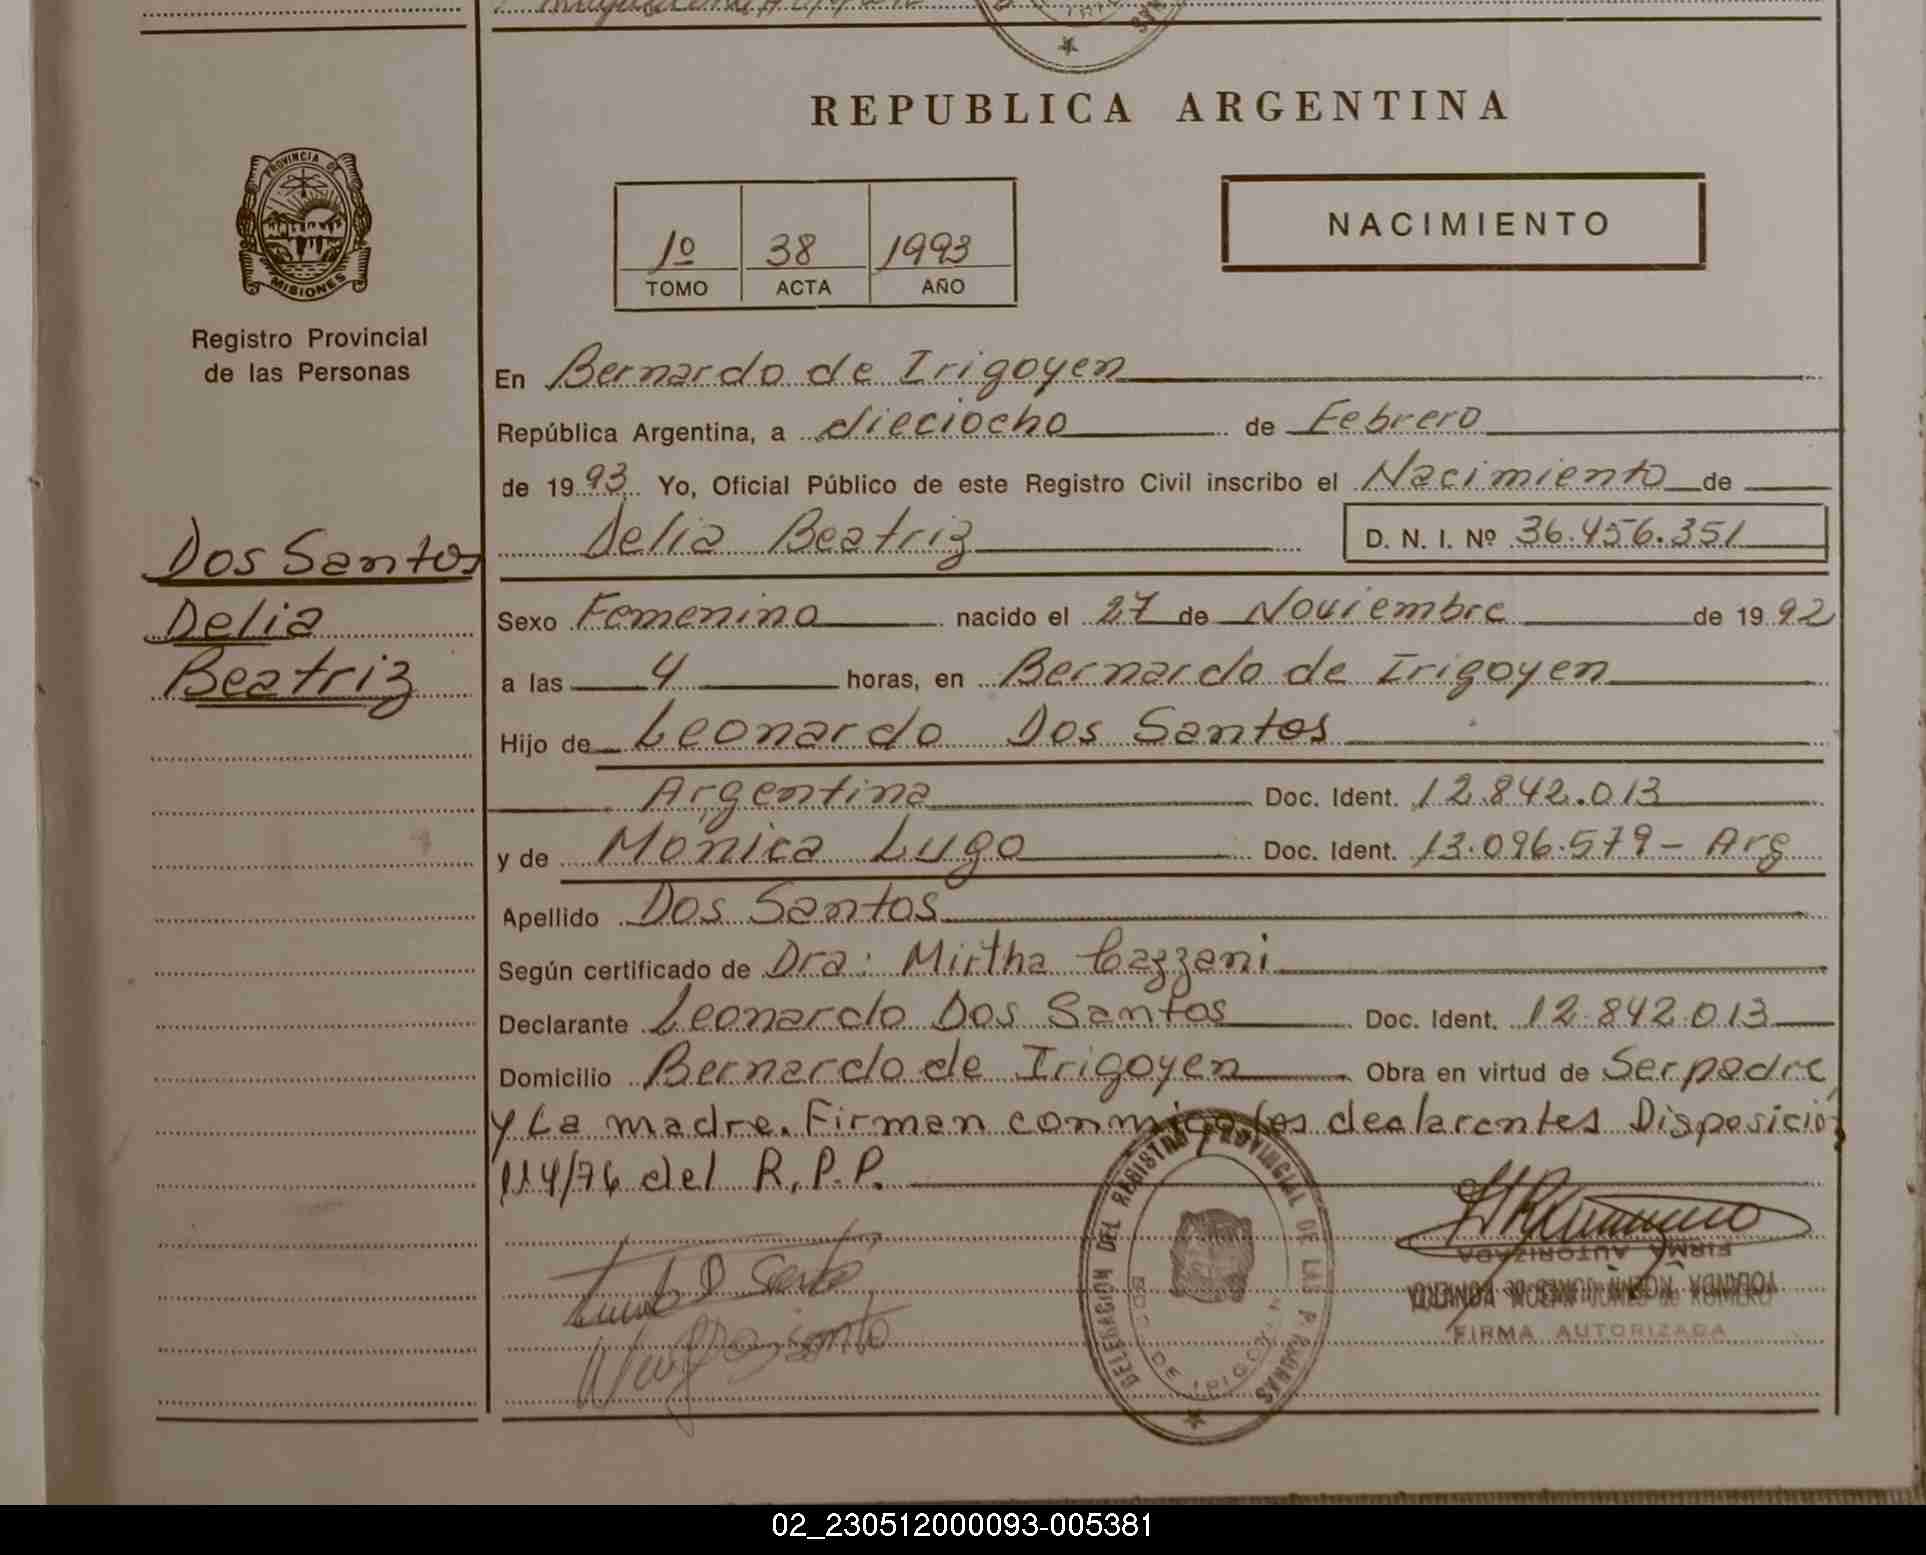 REPUBLICA ARGENTINA
PROVINCIA DE
MISIONES
Registro Provincial
de las Personas
1º 38 1993
TOMO ACTA AÑO
NACIMIENTO
Dos Santos
Delia
Beatriz
En Bernardo de Irigoyen
República Argentina, a dieciocho de Febrero
de 1993. Yo, Oficial Público de este Registro Civil inscribo el Nacimiento de
Delia Beatriz D. N. I. Nº 36.456.351
Sexo Femenino nacido el 27 de Noviembre de 1992
a las 4 horas, en Bernardo de Irigoyen
Hijo de Leonardo Dos Santos
Argentina Doc. Ident. 12.842.013
y de Monica Lugo Doc. Ident. 13.096.579 - Arg
Apellido Dos Santos
Según certificado de Dra: Mirtha Cazzani
Declarante Leonardo Dos Santos Doc. Ident. 12.842.013
Domicilio Bernardo de Irigoyen Obra en virtud de Ser padre
y La madre. Firman conmigo los declarantes Disposición
114/76 del R.P.P.
DELEGACION DEL REGISTRO PROVINCIAL DE LAS PERSONAS
DE IRIGOYEN
FIRMA AUTORIZADA
YOLANDA NOEMI JONES de ROMERO
FIRMA AUTORIZADA
02_230512000093-005381